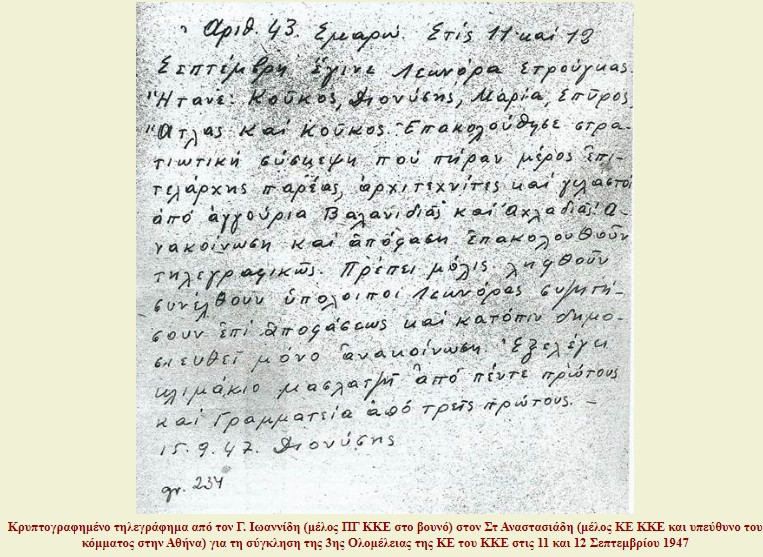 Αριθ. 43. Σμαρώ. Στίς 11 καί 12
Σεπτέμβρη ἔγινε Λεωνόρα Στρούγκας.
Ἤτανε: Κοῦκος, Διονύσης, Μαρία, Σπῦρος,
Ἄτλας καί Κοῦκος. Ἐπακολούθησε στρα-
τιωτική σύσκεψη πού πῆραν μέρος ἐπι-
τελάρχης παρέας, ἀρχιτεχνίτες καί γελαστοί
ἀπό ἀγγούρια Βαλανιδιᾶς καί Ἀχλαδιᾶς. Ἀ-
νακοίνωση καί ἀπόφαση ἐπακολουθοῦν
τηλεγραφικῶς. Πρέπει μόλις ληφθοῦν
συνελθοῦν ὑπόλοιποι Λεωνόρας συζητή-
σουν ἐπί ἀποφάσεως καί κατόπιν δημο-
σιευθεῖ μόνο ἀνακοίνωση. Ἐξελέγη
κλιμάκιο μασλατζῆ ἀπό πέντε πρώτους
καί Γραμματεία ἀπό τρεῖς πρώτους. –
15.9.47. Διονύσης
gr. 234
Κρυπτογραφημένο τηλεγράφημα από τον Γ. Ιωαννίδη (μέλος ΠΓ ΚΚΕ στο βουνό) στον Στ Αναστασιάδη (μέλος ΚΕ ΚΚΕ και υπεύθυνο του
κόμματος στην Αθήνα) για τη σύγκληση της 3ης Ολομέλειας της ΚΕ του ΚΚΕ στις 11 και 12 Σεπτεμβρίου 1947